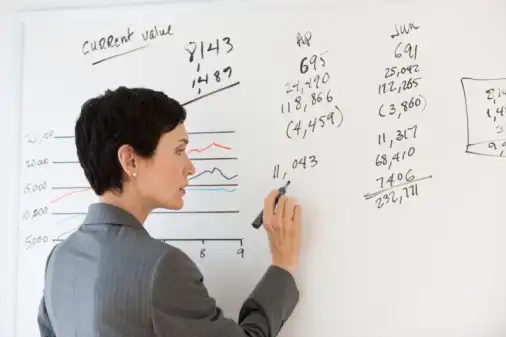 current value
8143
1489
25,000
20,000
15,000
10,000
5000
8
9
Ap
695
24,490
118,866
(4,459)
11,043
Jun
691
25,042
122,265
(3,860)
11,317
68,410
7406
232,771